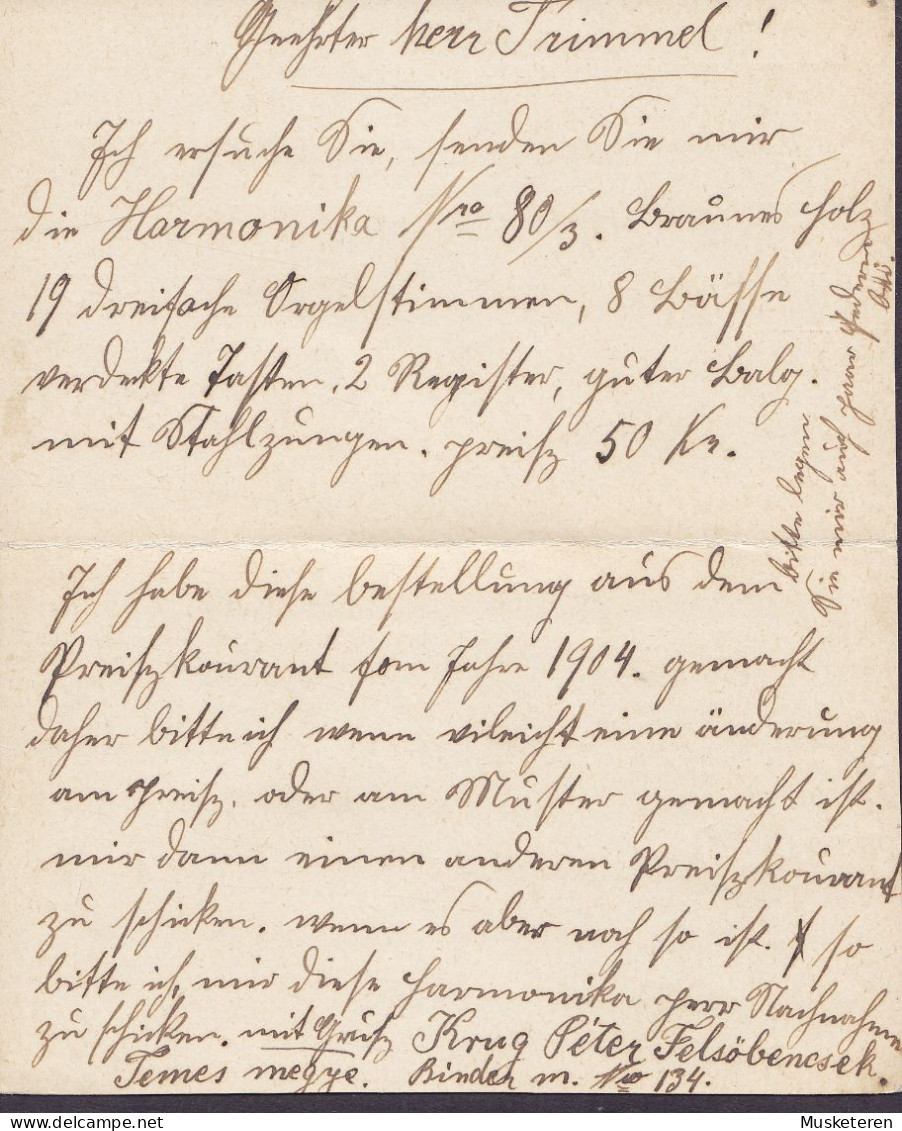 Geehrter Herr Trimmel!
Ich ersuche Sie, senden Sie mir
die Harmonika Nro 80/3. Braunes holz
19 dreifache Orgelstimmen, 8 Bässe
verdekte Tasten, 2 Register, guter Balg.
mit Stahlzungen. preisz 50 Kr.
Ich habe diese bestellung aus dem
Preiszkourant fom Jahre 1904. gemacht
daher bitte ich wenn vileicht eine änderung
am preisz. oder am Muster gemacht ist.
mir dann einen anderen Preiszkourant
zu schicken. wenn es aber noch so ist. so
bitte ich, mir diese harmonika perr Nachnahme
zu schicken. mit Grusz Krug Péter Felsöbencsek.
Temes megye. Binder m. Nro 134.
bitte
Musketeren